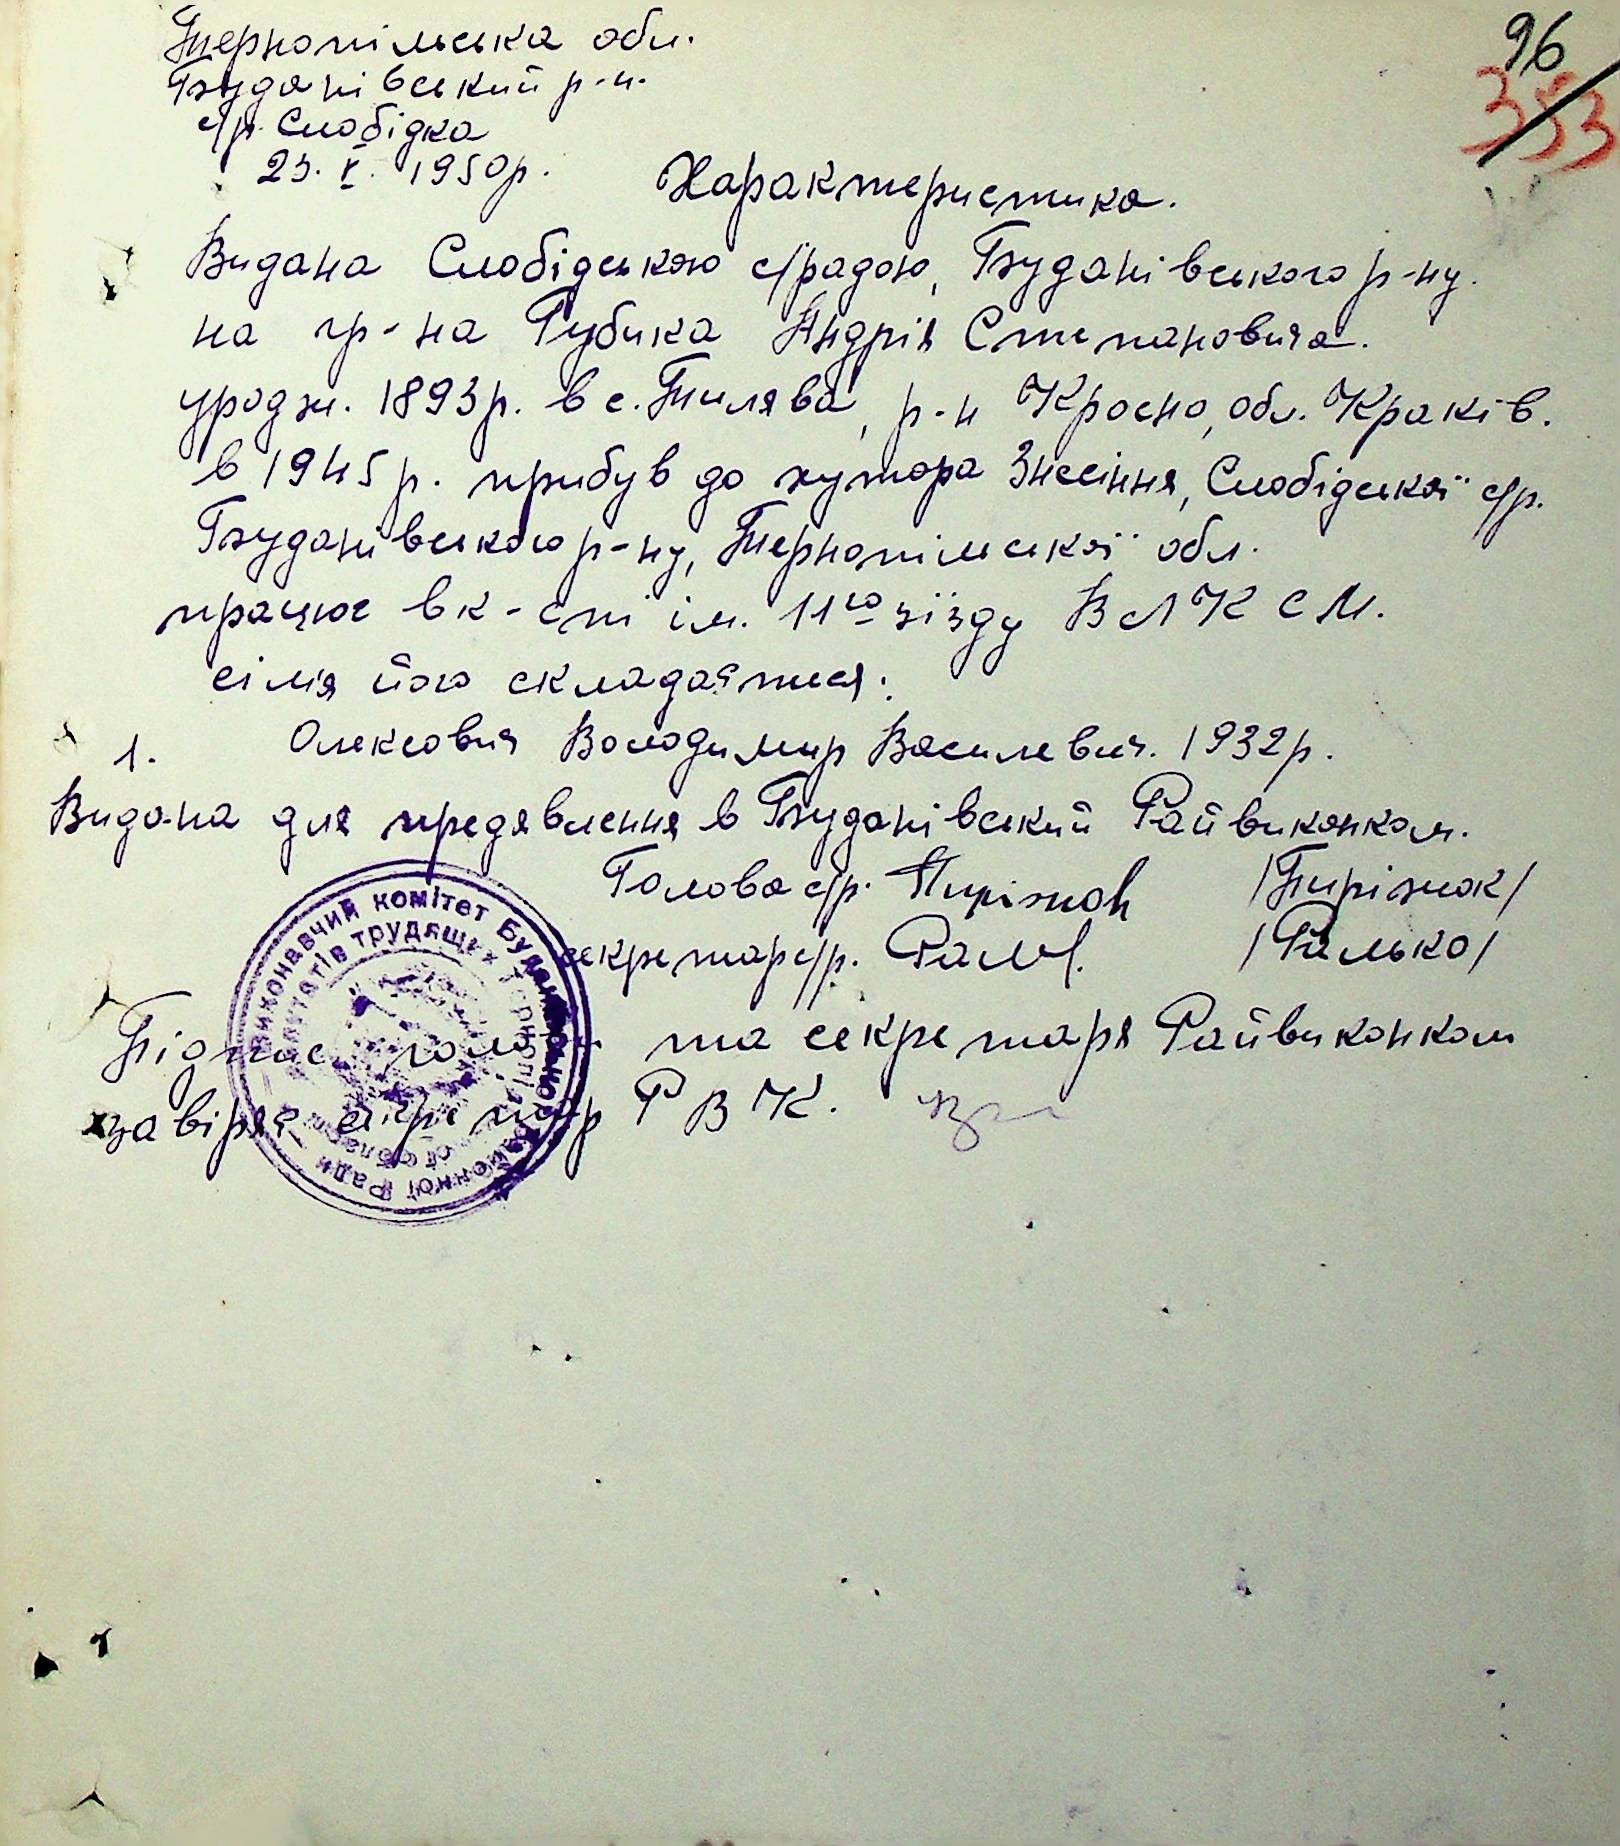 96
353
Тернопільська обл.
Буданівський р-н.
с/р. Слобідка
23. V. 1950р.
Характеристика.
Видана Слобідською с/радою, Буданівського р-ну.
на гр-на Губика Андрія Степановича.
уродж. 1893р. в с. Тилява, р-н Кросно, обл. Краків.
в 1945р. прибув до хутора Знесіння, Слобідської с/р.
Буданівського р-ну, Тернопільської обл.
працює в к-спі ім. 11го зїзду ВЛКСМ.
сімя його складається:
1. Олексович Володимир Василевич. 1932р.
Видана для предявлення в Буданівський Райвиконком.
Голова с/р. /Пиріжок/
секретар с/р. /Ралько/
Підпис голови та секретаря Райвиконком
завіряє секретар РВК.
Виконавчий комітет Буданівської районної Ради
депутатів трудящих Тернопільської області